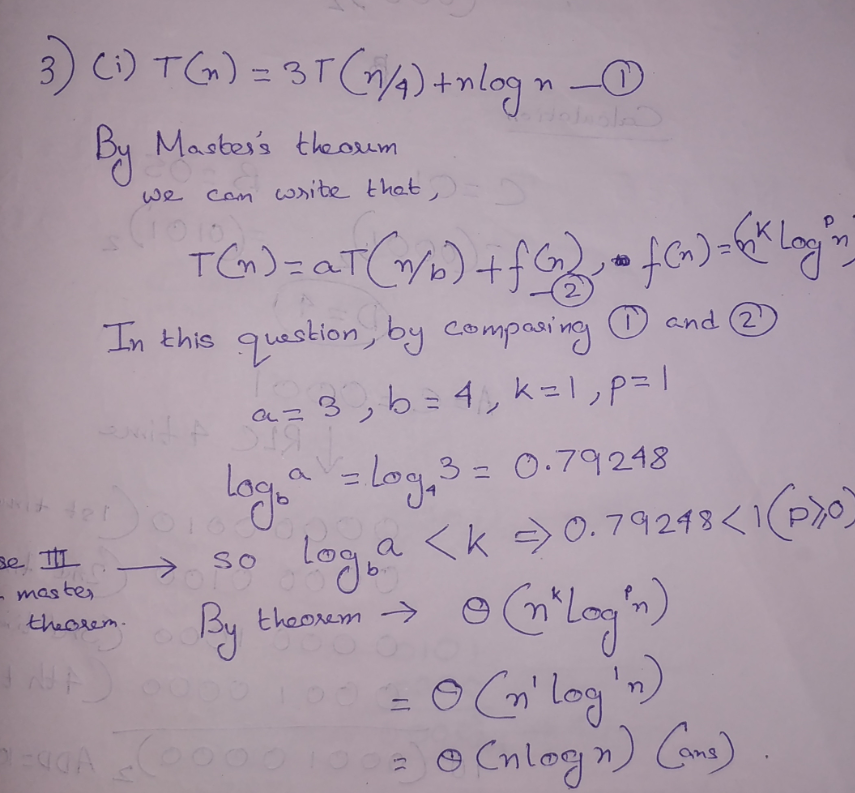 3) (i) T(n) = 3T(n/4) + nlog n — ①
By Master's theorum
we can write that,
T(n) = aT(n/b) + f(n), f(n) = (n^k Log^p n)
— ②
In this question, by comparing ① and ②
a = 3, b = 4, k = 1, p = 1
log_b a = log_4 3 = 0.79248
so log_b a < k ⇒ 0.79248 < 1 (p ≥ 0)
se III →
master
theorem.
By theorem → Θ(n^k Log^p n)
= Θ(n^1 log^1 n)
= Θ(nlogn) (ans).